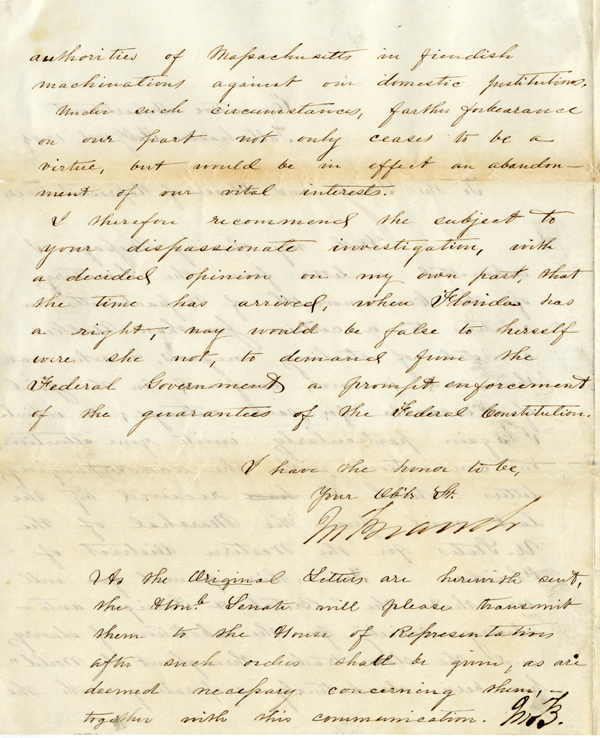 authorities of Massachusetts in fiendish
machinations against our domestic Institutions.
Under such circumstances, farther forbearance
on our part not only ceases to be a
virtue, but would be in effect an abandon-
ment of our vital interests.
I therefore recommend the subject to
your dispassionate investigation, with
a decided opinion on my own part, that
the time has arrived, when Florida has
a right, nay would be false to herself
were she not, to demand from the
Federal Government a prompt enforcement
of the guarantees of the Federal Constitution.
I have the honor to be,
Your Obt. St.
Jn Branch
As the Original Letters are herewith sent,
the Honble Senate will please transmit
them to the House of Representatives
after such orders shall be given, as are
deemed necessary concerning them,-
together with this communication. Jn B.